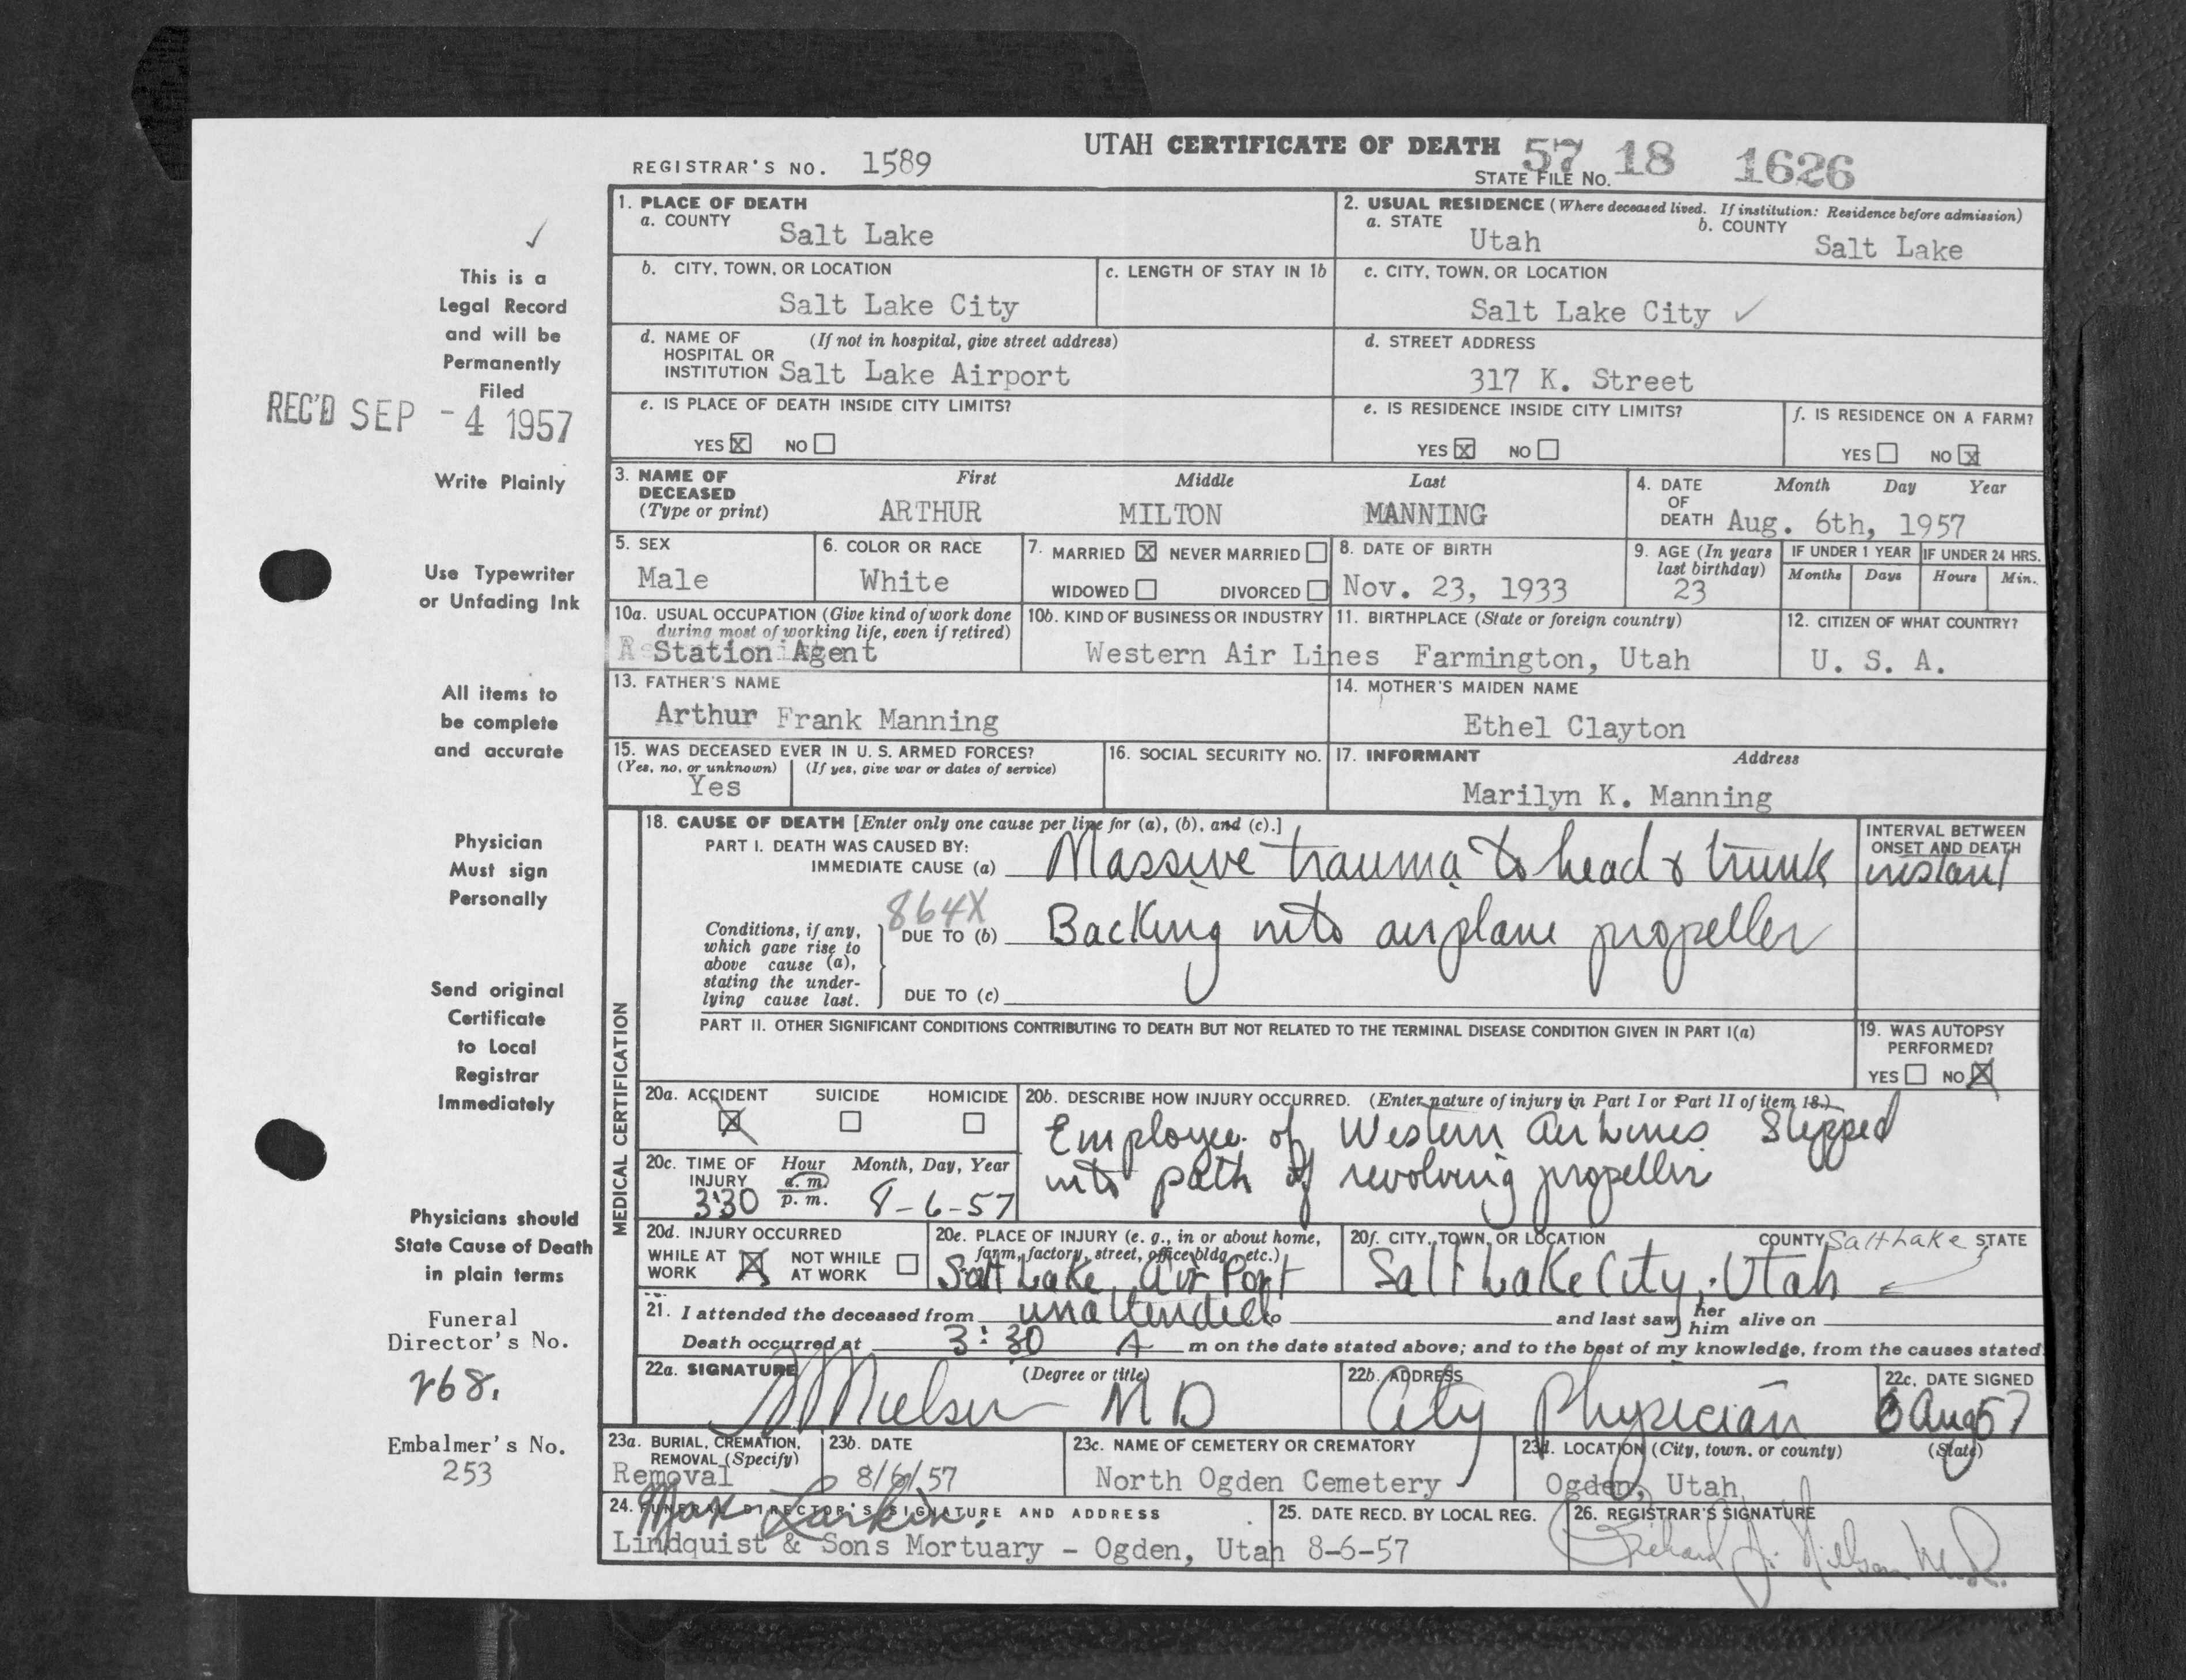 UTAH CERTIFICATE OF DEATH 57 18 1626
REGISTRAR'S NO. 1589
STATE FILE NO.
1. PLACE OF DEATH
a. COUNTY Salt Lake
2. USUAL RESIDENCE (Where deceased lived. If institution: Residence before admission)
a. STATE Utah b. COUNTY Salt Lake
b. CITY, TOWN, OR LOCATION Salt Lake City
c. LENGTH OF STAY IN 1b
c. CITY, TOWN, OR LOCATION Salt Lake City ✓
d. NAME OF (If not in hospital, give street address)
HOSPITAL OR
INSTITUTION Salt Lake Airport
d. STREET ADDRESS
317 K. Street
e. IS PLACE OF DEATH INSIDE CITY LIMITS?
YES X NO
e. IS RESIDENCE INSIDE CITY LIMITS?
YES X NO
f. IS RESIDENCE ON A FARM?
YES NO X
3. NAME OF DECEASED (Type or print)
First Middle Last
ARTHUR MILTON MANNING
4. DATE OF DEATH Month Day Year
Aug. 6th, 1957
5. SEX
Male
6. COLOR OR RACE
White
7. MARRIED X NEVER MARRIED
WIDOWED DIVORCED
8. DATE OF BIRTH
Nov. 23, 1933
9. AGE (In years last birthday)
23
IF UNDER 1 YEAR IF UNDER 24 HRS.
Months Days Hours Min.
10a. USUAL OCCUPATION (Give kind of work done
during most of working life, even if retired)
Station Agent
10b. KIND OF BUSINESS OR INDUSTRY
Western Air Lines
11. BIRTHPLACE (State or foreign country)
Farmington, Utah
12. CITIZEN OF WHAT COUNTRY?
U. S. A.
13. FATHER'S NAME
Arthur Frank Manning
14. MOTHER'S MAIDEN NAME
Ethel Clayton
15. WAS DECEASED EVER IN U. S. ARMED FORCES?
(Yes, no, or unknown) (If yes, give war or dates of service)
Yes
16. SOCIAL SECURITY NO.
17. INFORMANT Address
Marilyn K. Manning
MEDICAL CERTIFICATION
18. CAUSE OF DEATH [Enter only one cause per line for (a), (b), and (c).]
PART I. DEATH WAS CAUSED BY:
IMMEDIATE CAUSE (a) Massive trauma to head & trunk
INTERVAL BETWEEN
ONSET AND DEATH
instant
864X
Conditions, if any,
which gave rise to
above cause (a),
stating the under-
lying cause last.
DUE TO (b) Backing into airplane propeller
DUE TO (c)
PART II. OTHER SIGNIFICANT CONDITIONS CONTRIBUTING TO DEATH BUT NOT RELATED TO THE TERMINAL DISEASE CONDITION GIVEN IN PART I(a)
19. WAS AUTOPSY
PERFORMED?
YES NO X
20a. ACCIDENT SUICIDE HOMICIDE
X
20b. DESCRIBE HOW INJURY OCCURRED. (Enter nature of injury in Part I or Part II of item 18.)
Employee of Western Air Lines Stepped
into path of revolving propeller
20c. TIME OF INJURY Hour Month, Day, Year
a. m.
3:30 p. m. 8-6-57
20d. INJURY OCCURRED
WHILE AT WORK X NOT WHILE AT WORK
20e. PLACE OF INJURY (e. g., in or about home,
farm, factory, street, office bldg., etc.)
Salt Lake Air Port
20f. CITY, TOWN, OR LOCATION COUNTY Salt Lake STATE
Salt Lake City, Utah
21. I attended the deceased from unattended to and last saw her him alive on
Death occurred at 3:30 A m on the date stated above; and to the best of my knowledge, from the causes stated.
22a. SIGNATURE (Degree or title)
Nielsen M D
22b. ADDRESS
City Physician
22c. DATE SIGNED
6 Aug 57
23a. BURIAL, CREMATION,
REMOVAL (Specify)
Removal
23b. DATE
8/6/57
23c. NAME OF CEMETERY OR CREMATORY
North Ogden Cemetery
23d. LOCATION (City, town, or county) (State)
Ogden, Utah
24. FUNERAL DIRECTOR'S SIGNATURE AND ADDRESS
Max Larkin.
Lindquist & Sons Mortuary - Ogden, Utah
25. DATE RECD. BY LOCAL REG.
8-6-57
26. REGISTRAR'S SIGNATURE
Richard J. Nielson M.D.
✓
This is a
Legal Record
and will be
Permanently
Filed
REC'D SEP -4 1957
Write Plainly
Use Typewriter
or Unfading Ink
All items to
be complete
and accurate
Physician
Must sign
Personally
Send original
Certificate
to Local
Registrar
Immediately
Physicians should
State Cause of Death
in plain terms
Funeral
Director's No.
268.
Embalmer's No.
253